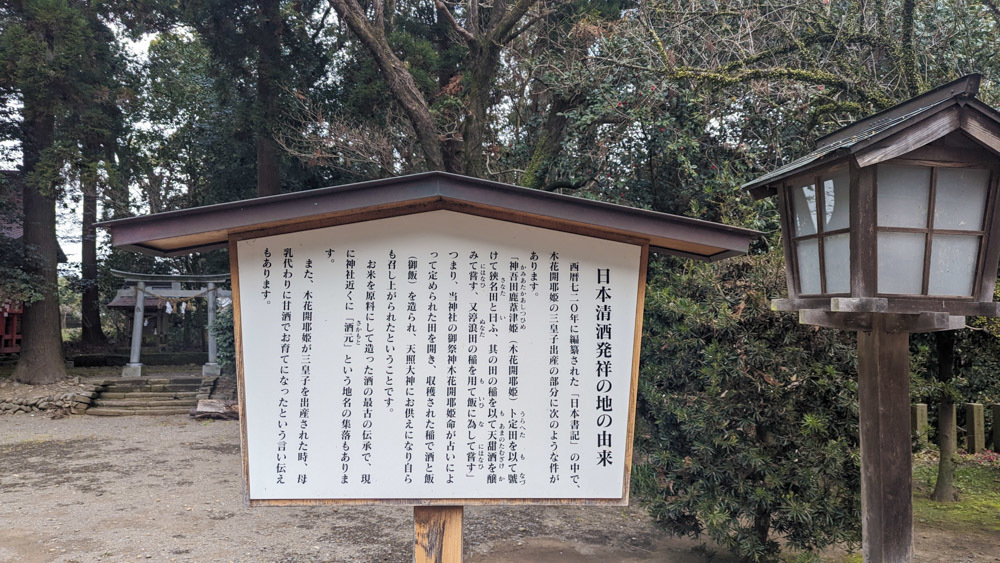 日本清酒発祥の地の由来
西暦七二〇年に編纂された「日本書記」の中で、
木花開耶姫の三皇子出産の部分に次のような件が
あります。
かみあたかあしつひめ うらへた も なづ
「神吾田鹿葦津姫（木花開耶姫）卜定田を以て號
さなた い も あまのたむざけ か
けて狭名田と曰ふ、其の田の稲を以て天甜酒を醸
にはなひ ぬなた も いひ な にはなひ
みて嘗す 又渟浪田の稲を用て飯に為して嘗す」
つまり、当神社の御祭神木花開耶姫命が占いによ
って定められた田を開き、収穫された稲で酒と飯
（御飯）を造られ、天照大神にお供えになり自ら
も召し上がられたということです。
お米を原料にして造った酒の最古の伝承で、現
さかもと
に神社近くに「酒元」という地名の集落もありま
す。
また、木花開耶姫が三皇子を出産された時、母
乳代わりに甘酒でお育てになったという言い伝え
もあります。